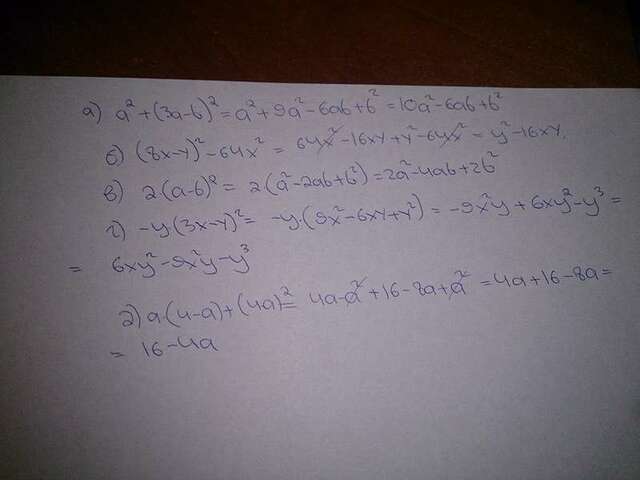 а) a²+(3a-b)²=a²+9a²-6ab+b²=10a²-6ab+b²
б) (8x-y)²-64x²= 64x²-16xy+y²-64x²= y²-16xy.
в) 2(a-b)²= 2(a²-2ab+b²)=2a²-4ab+2b²
г) -y(3x-y)²= -y·(9x²-6xy+y²)=-9x²y+6xy²-y³=
= 6xy²-9x²y-y³
д) a·(4-a)+(4a)²= 4a-a²+16-8a+a²=4a+16-8a=
= 16-4a